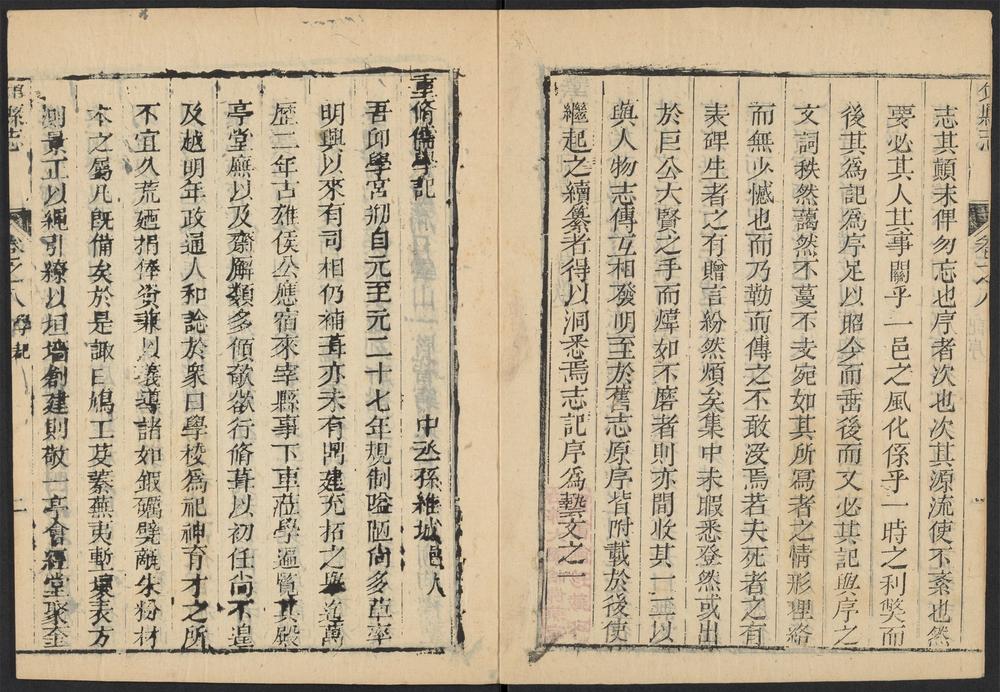 志其顛末俾勿忘也序者次也次其源流使不紊也然
要必其人其事關乎一邑之風化係乎一時之利獘而
後其爲記爲序足以昭今而畱後而又必其記與序之
文詞秩然藹然不蔓不支宛如其所寫者之情形理絡
而無少憾也而乃勒而傳之不敢没焉若夫死者之有
表碑生者之有贈言紛然煩矣集中未暇悉登然或出
於巨公大賢之手而煒如不磨者則亦間收其一二以
與人物志傳互相發明至於舊志原序皆附載於後使
繼起之續纂者得以洞悉焉志記序爲藝文之一
重脩儒學記
中丞孫維城邑人
吾邱學宮刱自元至元二十七年規制隘陋尙多草率
明興以來有司相仍補葺亦未有鼎建充拓之舉迨萬
歴二年古雄侯公應宿來宰縣事下車涖學遍覽其殿
亭堂廡以及齋廨類多傾欹欲行脩葺以初任尙不遑
及越明年政通人和諗於衆曰學校爲祀神育才之所
不宜久荒廼捐俸貲兼以義導諸如鍜礪甓甋朱粉材
木之屬凡旣備矣於是諏日鳩工芟蓁蕪夷塹壤表方
測景正以繩引繚以垣墻創建則敬一亭會經堂聚奎
縣志
卷之八
記
二
縣志
卷之八